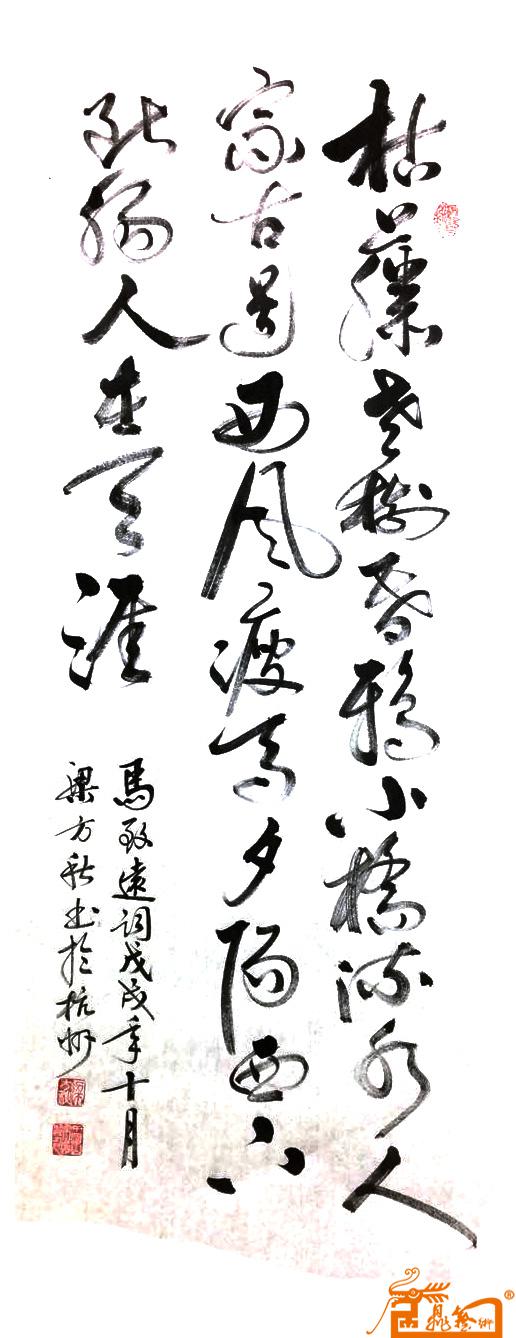 枯藤老樹昏鴉小橋流水人
家古道西风瘦马夕陽西下
断腸人在天涯
馬致遠詞戊戌年十月
梁方秋书於杭州